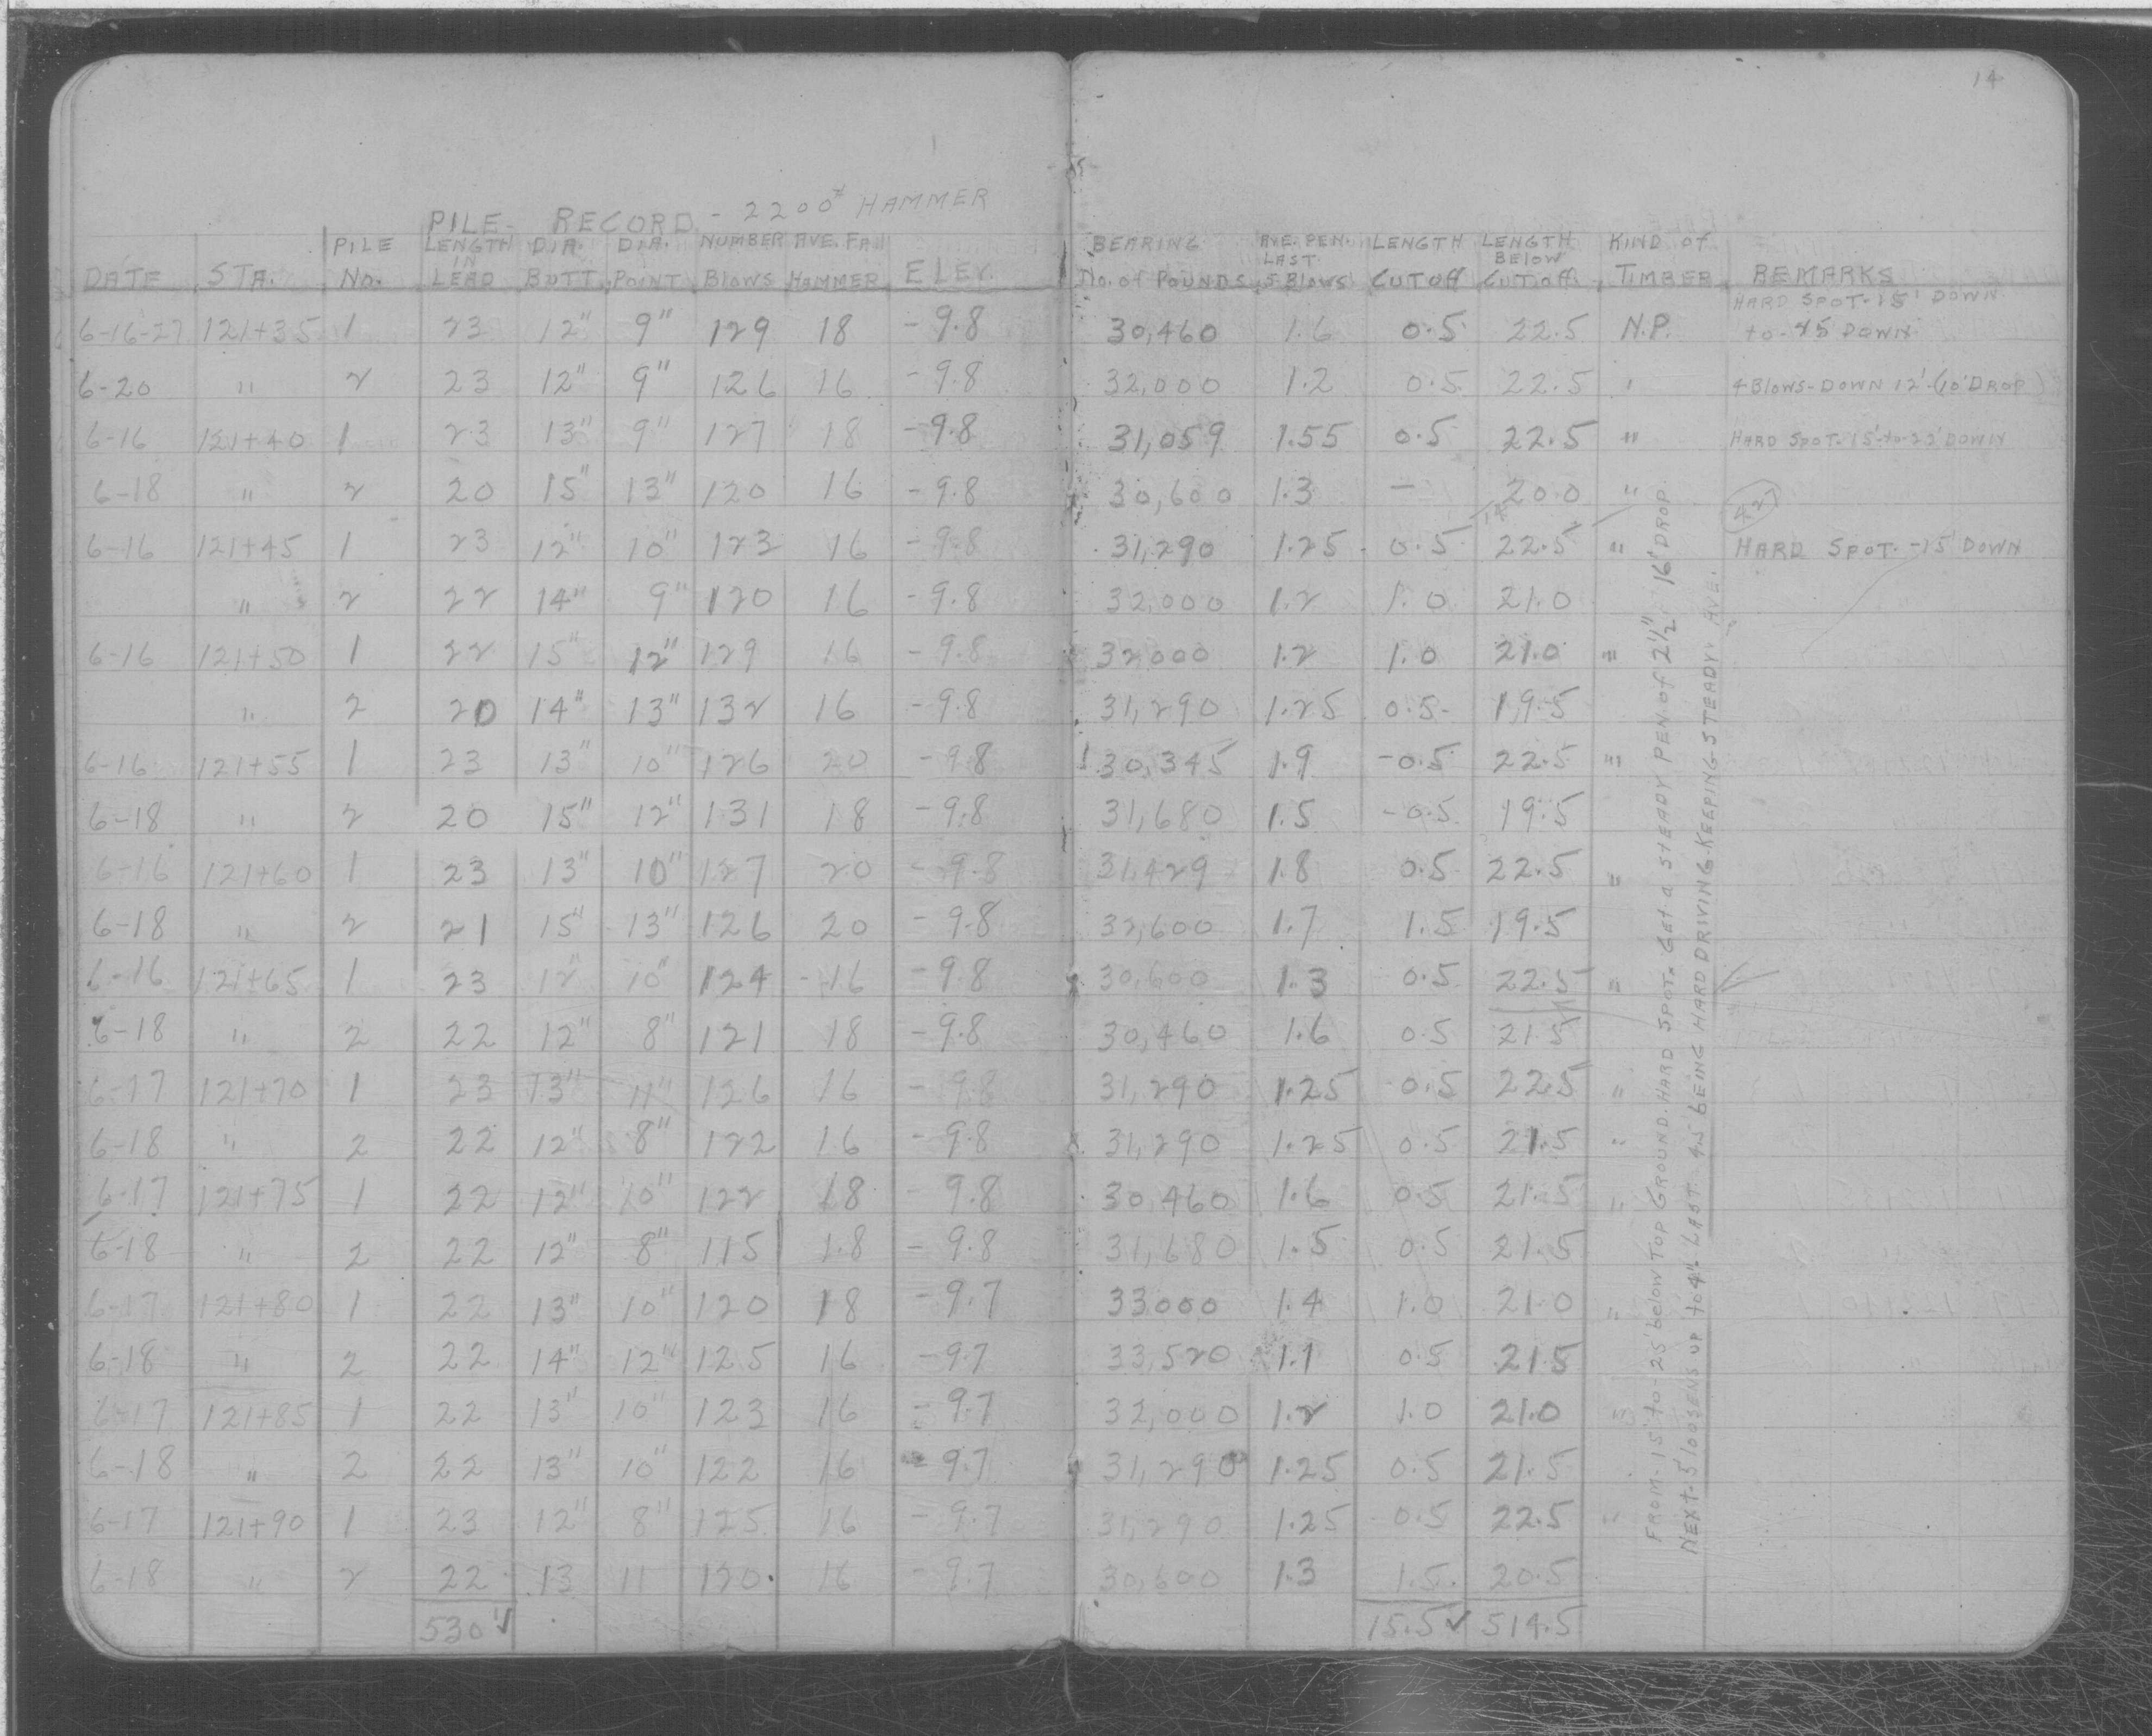 14
PILE- RECORD - 2200# HAMMER
DATE STA. PILE No. LENGTH IN LEAD DIA. BUTT DIA. POINT NUMBER BLOWS AVE. FALL HAMMER ELEV. BEARING No. of POUNDS AVE. PEN. LAST 5 BLOWS LENGTH CUTOFF LENGTH BELOW CUTOFF KIND OF TIMBER REMARKS
6-16-27 121+35 1 23 12" 9" 129 18 -9.8 30,460 1.6 0.5 22.5 N.P. HARD SPOT-15' DOWN
to-45 DOWN
6-20 " 2 23 12" 9" 126 16 -9.8 32,000 1.2 0.5 22.5 " 4 Blows-DOWN 12'-(10' DROP)
6-16 121+40 1 23 13" 9" 127 18 -9.8 31,059 1.55 0.5 22.5 " HARD SPOT-15'-to-22' DOWN
6-18 " 2 20 15" 13" 120 16 -9.8 30,600 1.3 - 20.0 "
6-16 121+45 1 23 12" 10" 123 16 -9.8 31,290 1.25 0.5 22.5 " HARD SPOT.-15' DOWN
" 2 22 14" 9" 120 16 -9.8 32,000 1.2 1.0 21.0
6-16 121+50 1 22 15" 12" 129 16 -9.8 32,000 1.2 1.0 21.0 "
" 2 20 14" 13" 132 16 -9.8 31,290 1.25 0.5- 19.5
6-16 121+55 1 23 13" 10" 126 20 -9.8 30,345 1.9 -0.5 22.5 "
6-18 " 2 20 15" 12" 131 18 -9.8 31,680 1.5 -0.5 19.5
6-16 121+60 1 23 13" 10" 127 20 -9.8 31,429 1.8 0.5 22.5 "
6-18 " 2 21 15" 13" 126 20 -9.8 32,600 1.7 1.5 19.5
6-16 121+65 1 23 12" 10" 124 16 -9.8 30,600 1.3 0.5 22.5 "
6-18 " 2 22 12" 8" 121 18 -9.8 30,460 1.6 0.5 21.5
6-17 121+70 1 23 13" 11" 126 16 -9.8 31,290 1.25 0.5 22.5 "
6-18 " 2 22 12" 8" 122 16 -9.8 31,290 1.25 0.5 21.5 "
6-17 121+75 1 22 12" 10" 122 18 -9.8 30,460 1.6 0.5 21.5 "
6-18 " 2 22 12" 8" 115 18 -9.8 31,680 1.5 0.5 21.5
6-17 121+80 1 22 13" 10" 120 18 -9.7 33000 1.4 1.0 21.0 "
6-18 " 2 22 14" 12" 125 16 -9.7 33,520 1.1 0.5 21.5
6-17 121+85 1 22 13" 10" 123 16 -9.7 32,000 1.2 1.0 21.0 "
6-18 " 2 22 13" 10" 122 16 -9.7 31,290 1.25 0.5 21.5
6-17 121+90 1 23 12" 8" 125 16 -9.7 31,290 1.25 0.5 22.5 "
6-18 " 2 22 13 11 120 16 -9.7 30,600 1.3 1.5 20.5
530' ✓ 15.5 ✓ 514.5
FROM-15' to-25' below TOP GROUND. HARD SPOT. Get a STEADY PEN of 2½" 16' DROP.
NEXT-5' LOOSENS UP to 4". LAST 4.5 BEING HARD DRIVING KEEPING STEADY AVE.